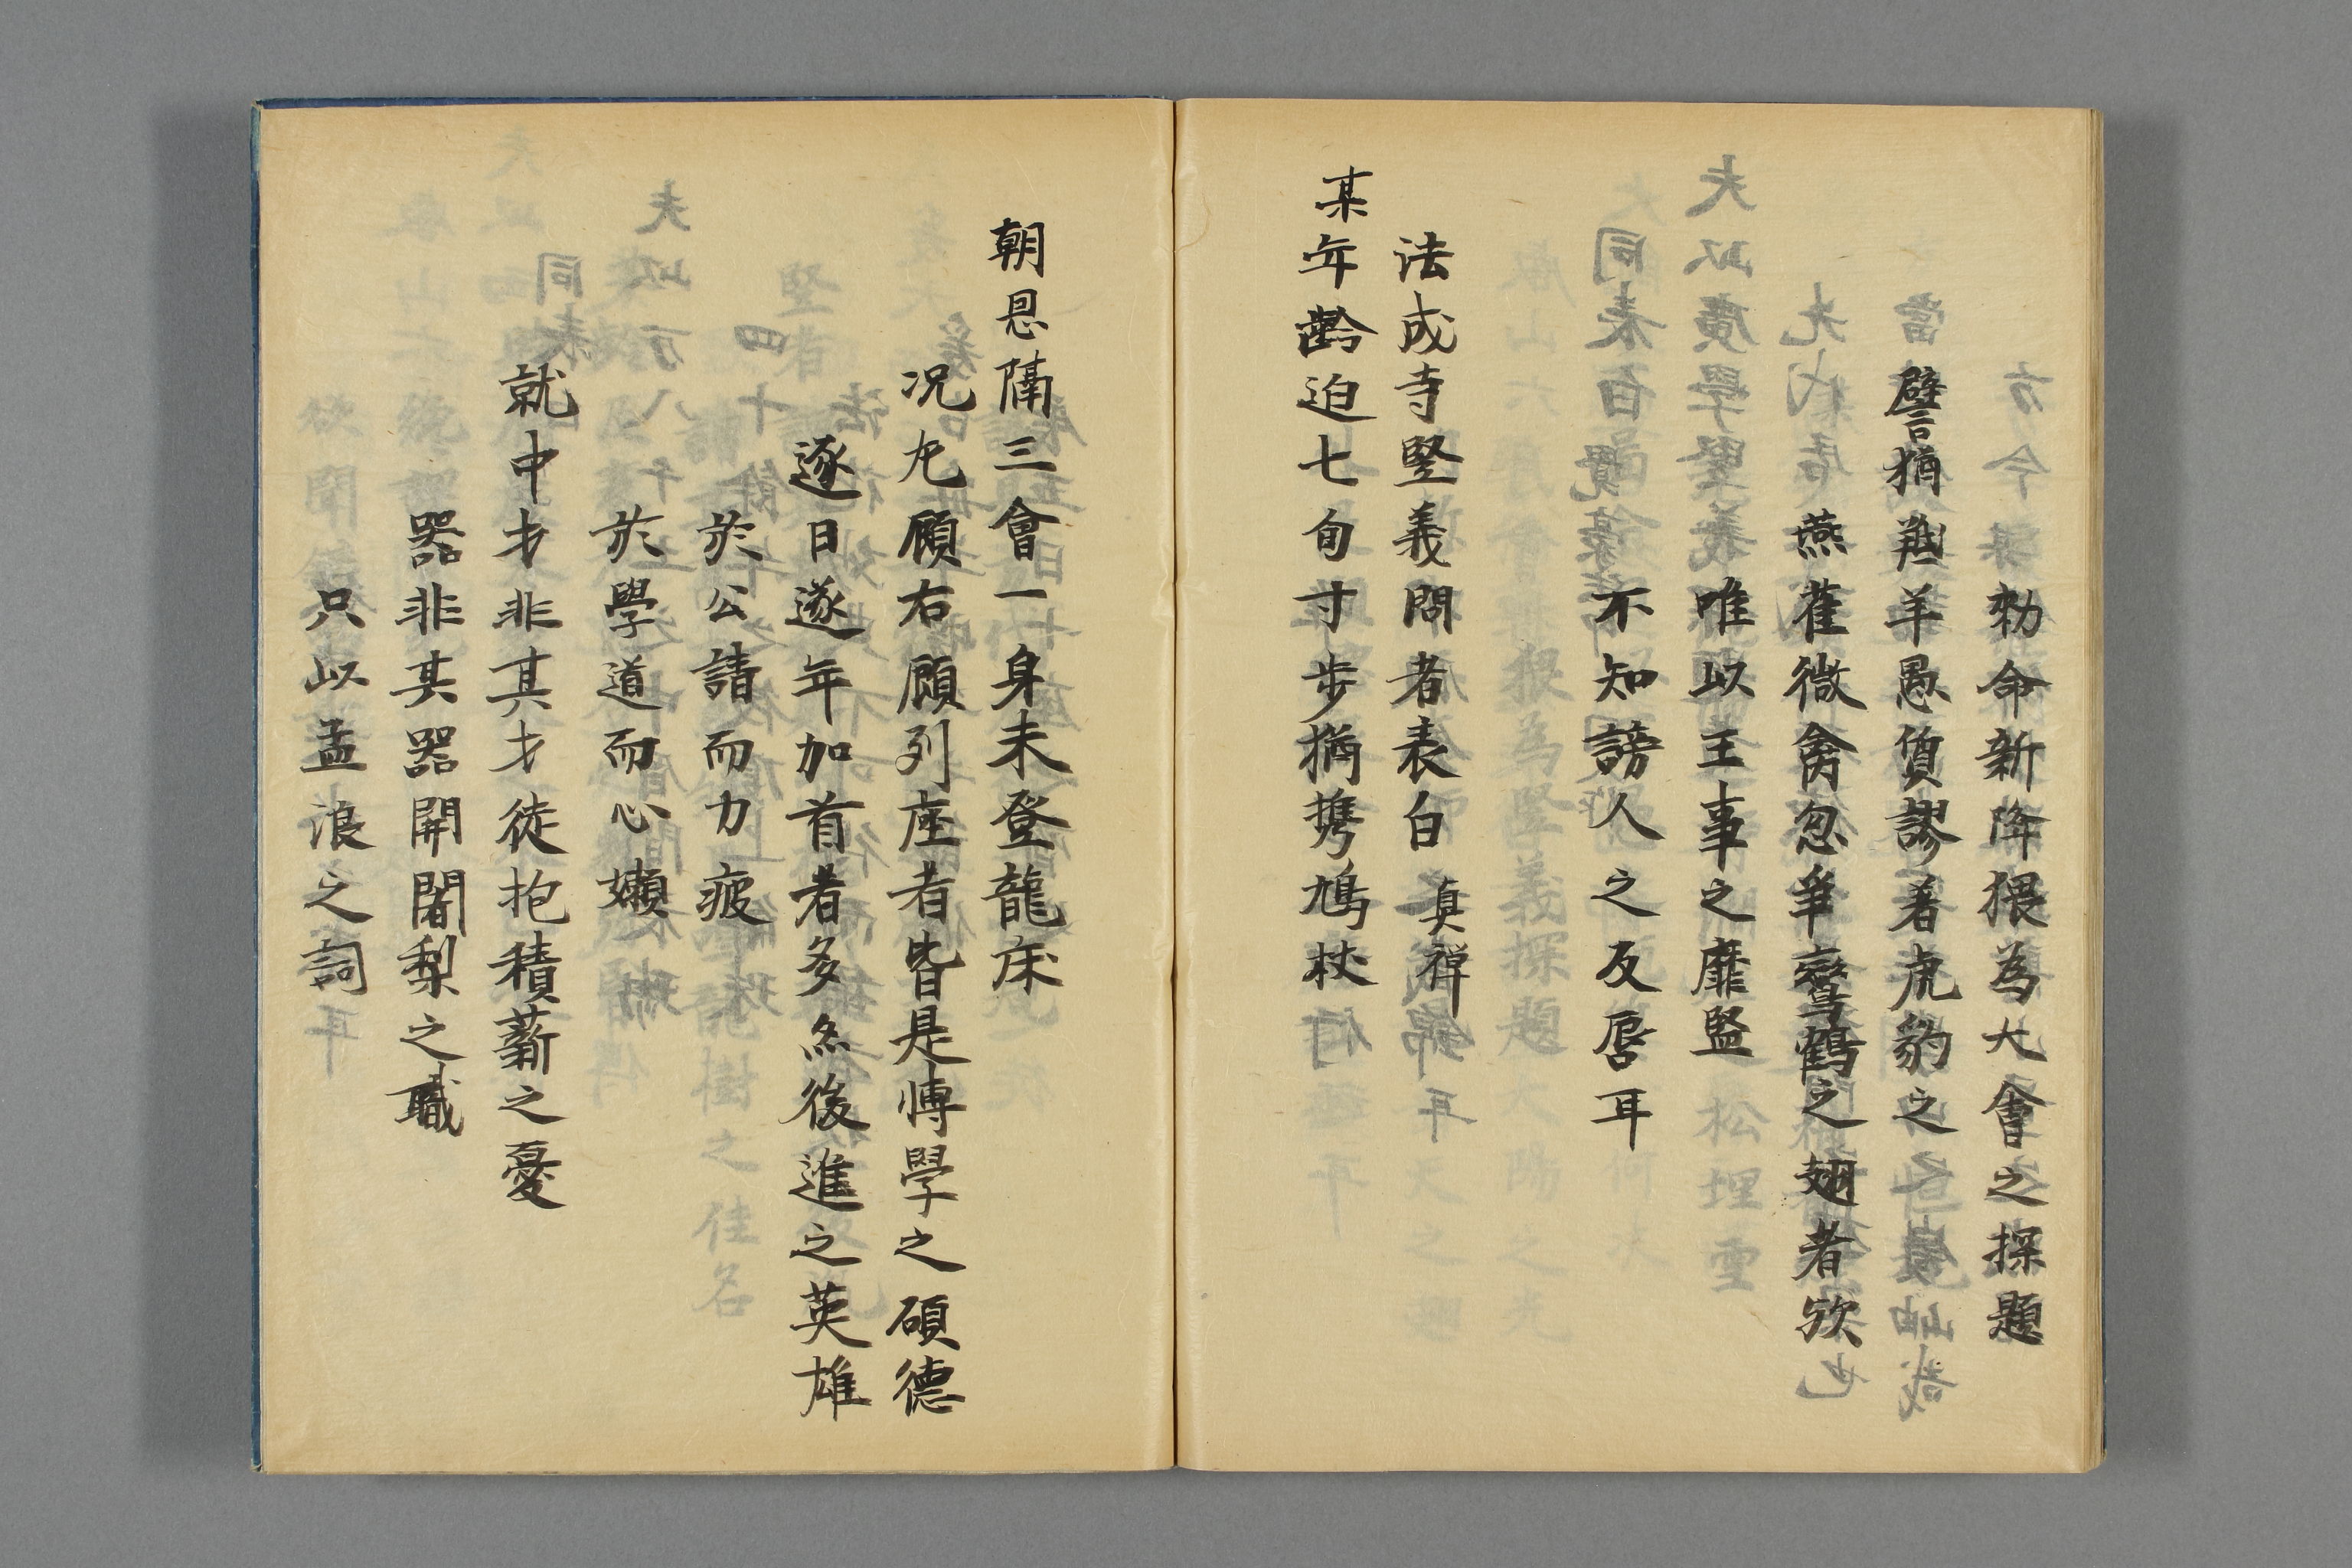 勑命新降猥為大會之探題
譬猶羝羊愚質謬著虎豹之
燕雀微禽忽爭鸞鶴之翅者欤
唯以王事之靡盬
不知謗人之反唇耳
法成寺竪義問者表白 真禅
某年齡迫七旬寸歩猶携鳩杖
朝恩隔三會一身未登龍床
况左顧右顧列座者皆是博學之碩德
逐日逐年加首者多為後進之英雄
於公請而力疲
於學道而心嬾
就中才非其才徒抱積薪之憂
器非其器開闍梨之職
只以孟浪之詞